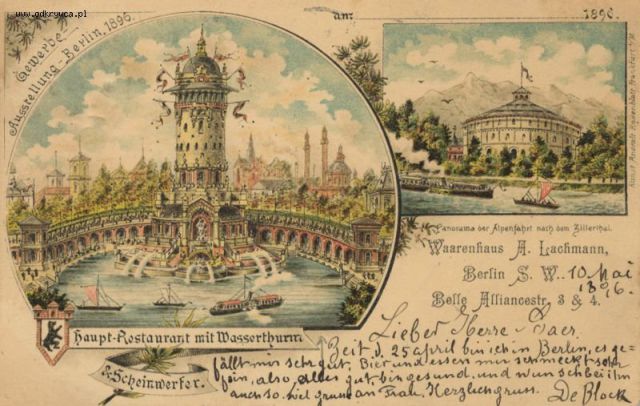 www.gdkryuca.pl
Gewerbe-
Ausstellung - Berlin, 1896.
an:
1896.
Panorama der Alpenfahrt nach dem Zillerthal.
Waarenhaus A. Lachmann,
Berlin S. W. 10 Mai
1896.
Belle Alliancestr. 3 & 4.
Haupt-Restaurant mit Wasserthurm
& Scheinwerfer.
Lieber Herre Baer.
Zeit d. 25 april bin ich in Berlin, es ge-
fällt mir sehr gut, Bier und essen mir schmeckt sehr
fein, also, alles gut, bin gesund, und wunsche ihm
auch so. viel gruss an Frau, Herzlich gruss.
De Block